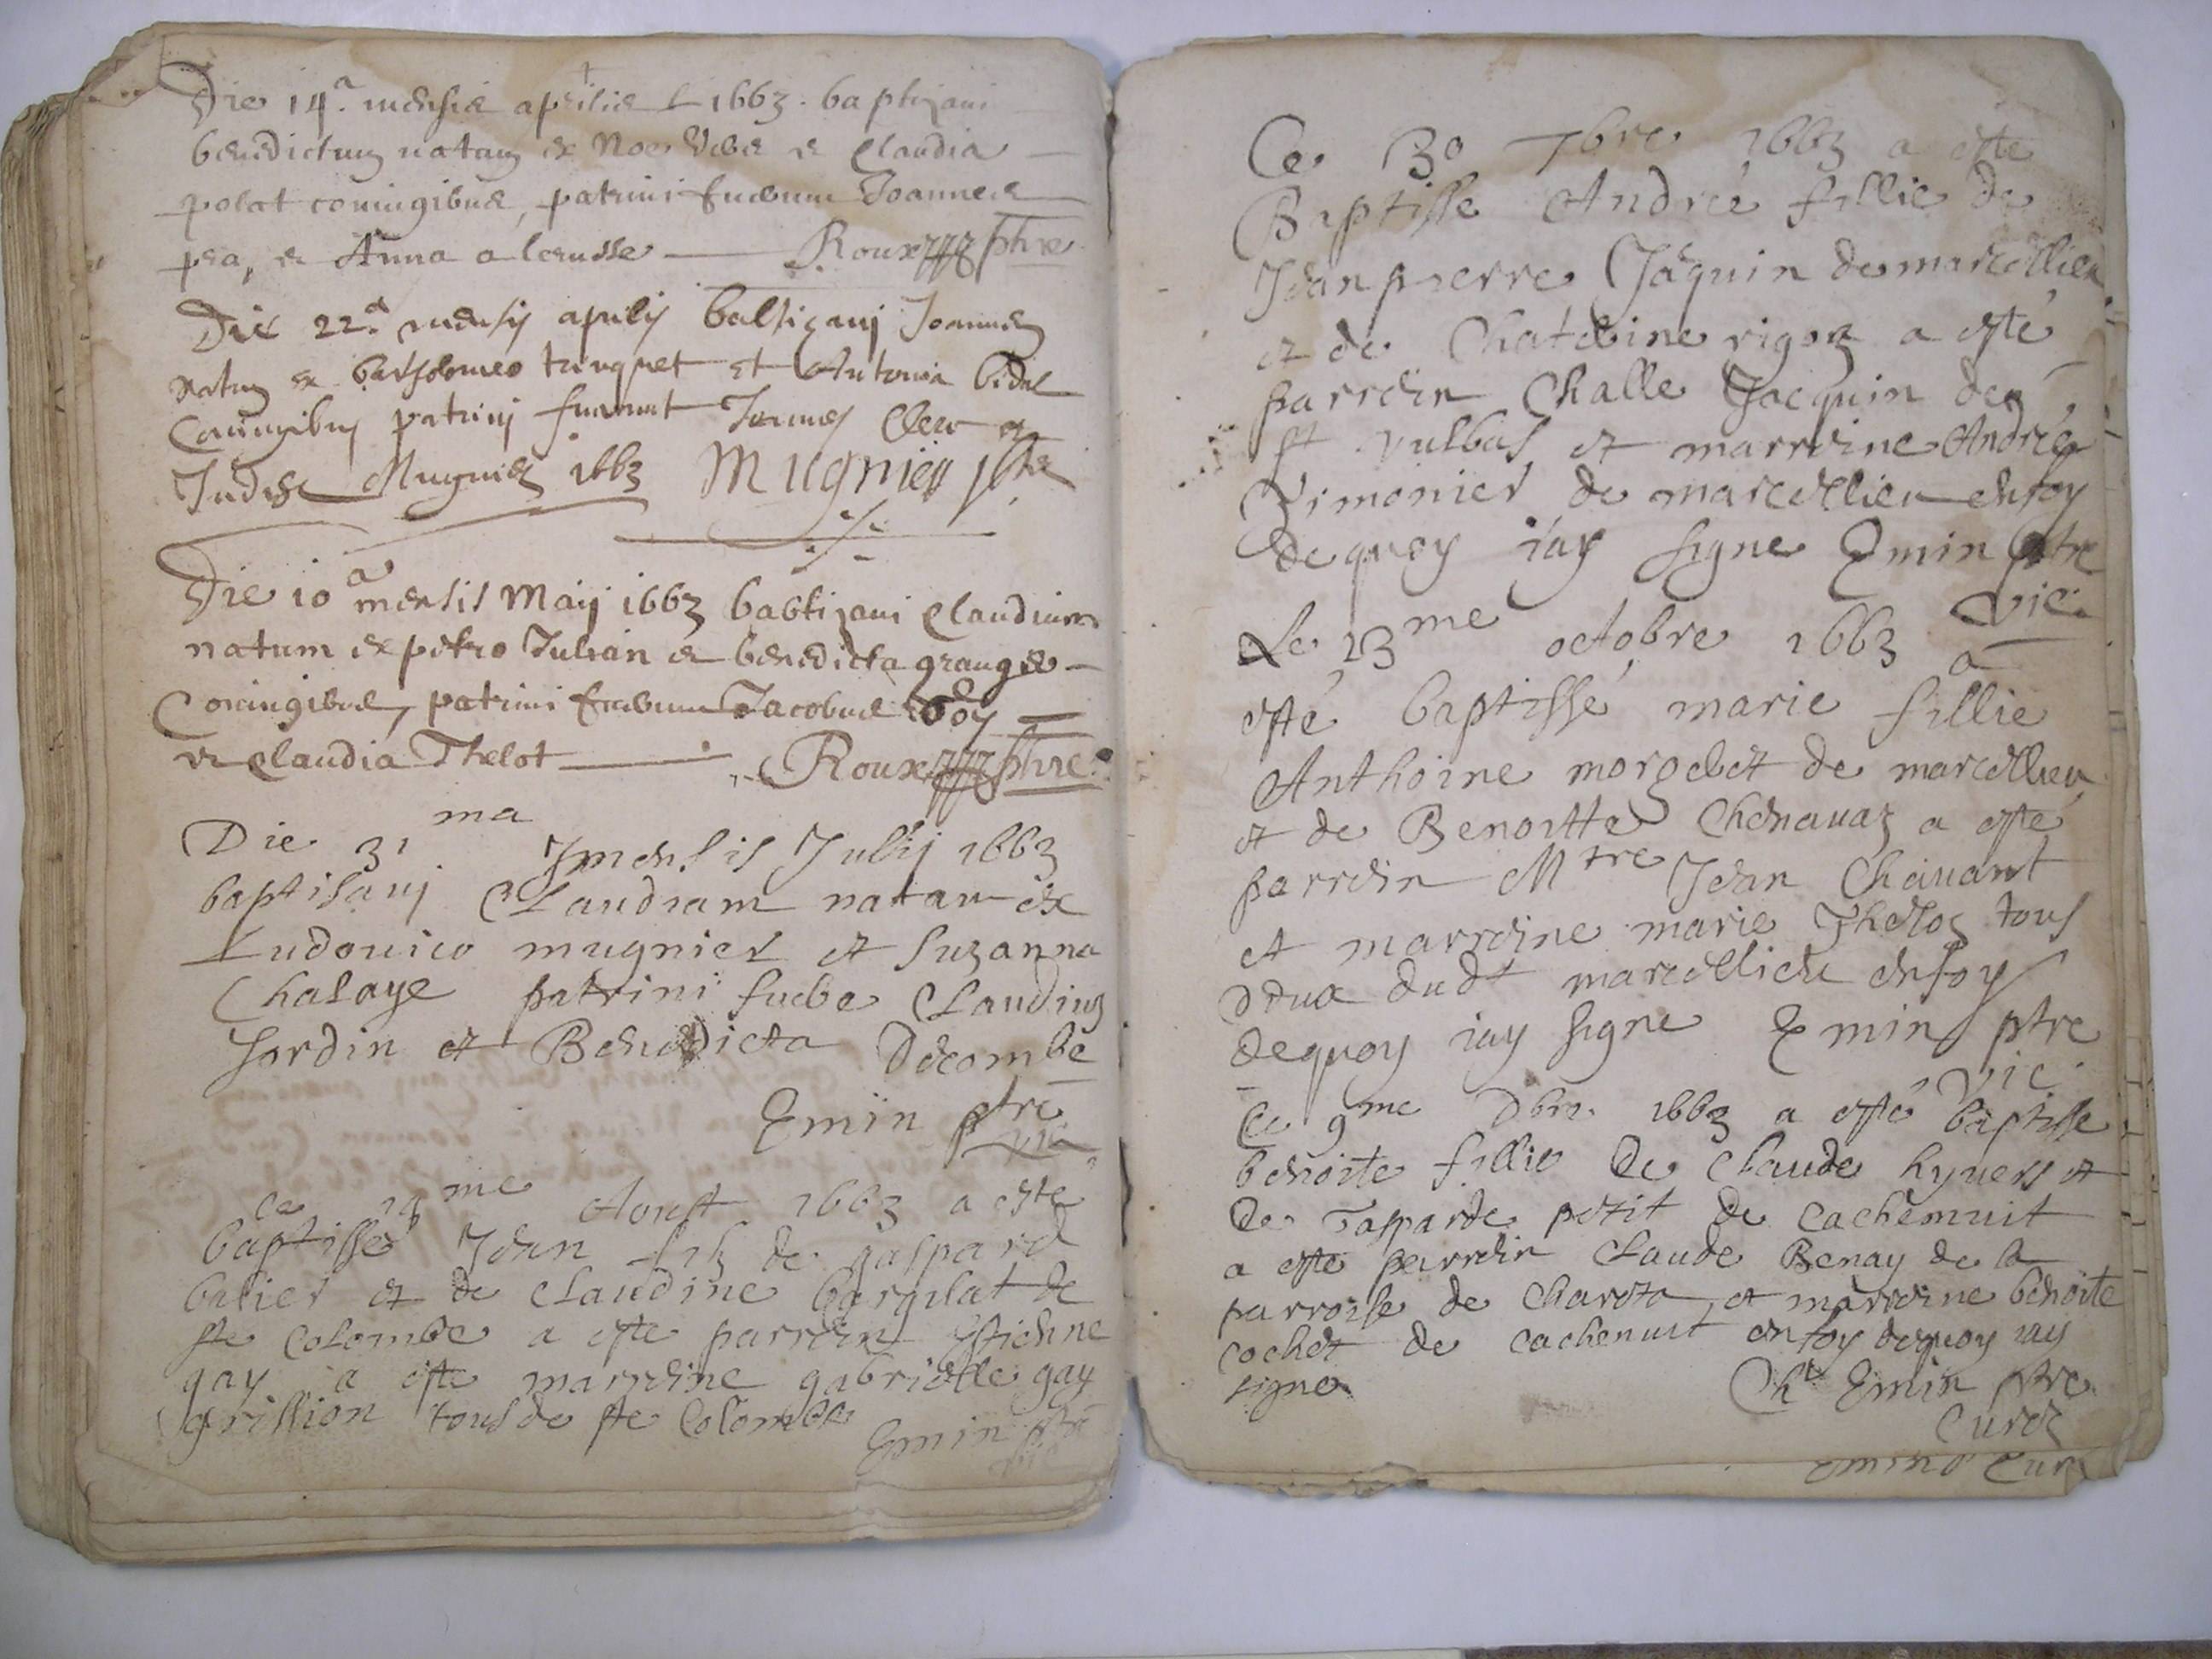 Die 14.a mensis aprilis 1663. baptizavi
benedictum natum ex Noe et Claudia
polat coniugibus, patrini fuerunt Joannes
pra, et Anna a lerusse Roux ptre
Die 22.a mensis aprilis baptizavi Joannem
natum ex bartholomeo turquet et Antonia bidal
Coniugibus patrini fuerunt Joannes Cler et
Mugnier 1663 Mugnier ptre
Die 10a mensis Maij 1663 babtizavi Claudium
natum ex petro Julian et benedicta grange
Coniugibus, patrini fuerunt Jacobus
et Claudia Thelot Roux ptre
Die 31 ma mensis Jullij 1663
baptisavj Claudiam natam ex
Ludovico mugnier et Suzanna
Chalaye patrini fuere Claudius
Jordin et Benedicta Decombe
Emin ptre
vic
Ce me Aoust 1663 a este
baptisse Jean filz de gaspard
balier et de Claudine bargilat de
ste Colombe a este parrein Estienne
gay a este marreine gabrielle gay
grillion tous de ste Colombe
Emin ptre
Ce 30 7bre 1663 a este
Baptisse Andreé fillie de
Jean pierre Jaquin de marcellieu
et de Chateline rigoz a esté
parrein Challe Jacquin de
st vulbas et marreine Andreé
Vimonier de marcellieu en foy
de quoy i'ay signe Emin ptre
vic.
Le 23me octobre 1663 a
esté baptissé marie fillie
Anthoine morgelet de marcellieu
et de Benoitte Chenavaz a esté
parrein Mtre Jean Chavant
et marreine marie Theloz tous
deux dudt marcellieu en foy
de quoy iay signe Emin ptre
vic.
Ce 9me Dbre. 1663 a esté baptisse
benoite fillie de Claude hyvers et
de Gasparde petit de Cachenuit
a este parrein Claude Benay de la
parroisse de Chareta et marreine benoite
cochet de cachenuit en foy de quoy iay
signe Emin ptre
Curé
Emin Cur